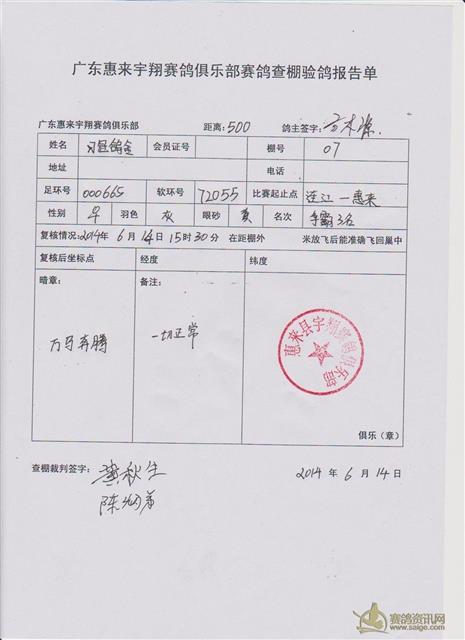 广东惠来宇翔赛鸽俱乐部赛鸽查棚验鸽报告单
广东惠来宇翔赛鸽俱乐部 距离:500 鸽主签字:
姓名 会员证号 棚号 07
地址 电话
足环号 000665 软环号 72055 比赛起止点 连江一惠来
性别 羽色 灰 眼砂 黄 名次 争霸3名
复核情况:2014年6月14日15时30分 在距棚外 米放飞后能准确飞回巢中
复核后坐标点 经度 纬度
暗章: 备注:
万马奔腾 一切正常
惠来县宇翔赛鸽俱乐部
俱乐(章)
查棚裁判签字: 2014年6月14日
赛鸽资讯网
www.saige.com